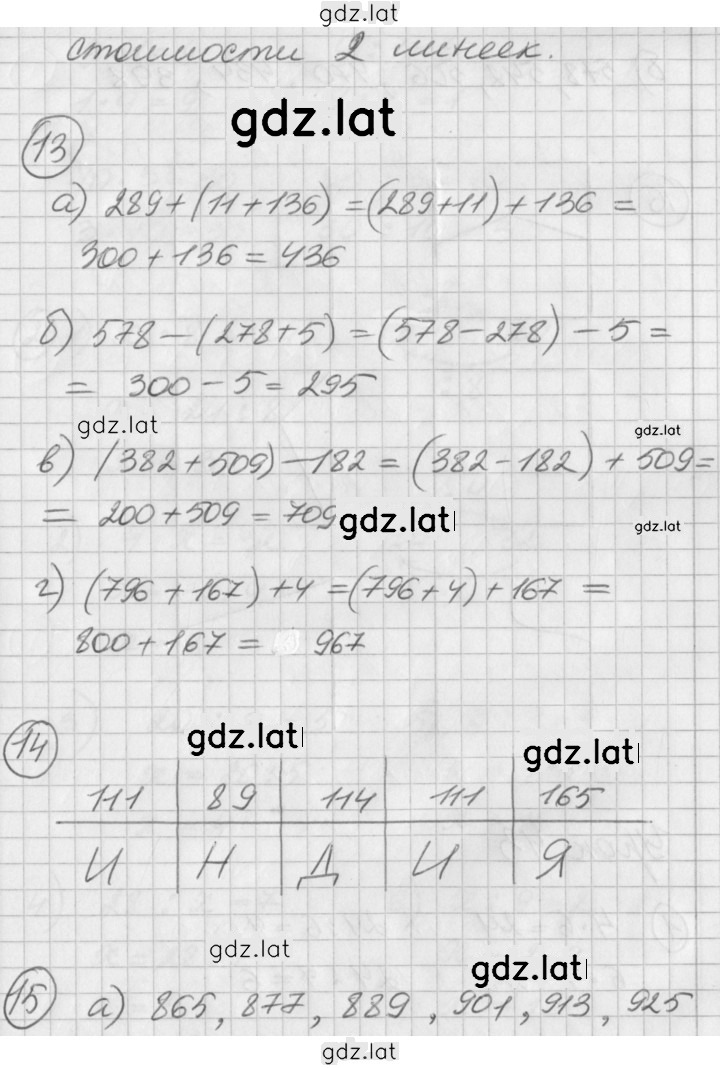 gdz.lat
стоимости 2 линеек.
gdz.lat
13
а) 289+(11+136)=(289+11)+136=
300+136=436
б) 578-(278+5)=(578-278)-5=
= 300-5=295
gdz.lat
gdz.lat
в) (382+509)-182=(382-182)+509=
= 200+509=709
gdz.lat
gdz.lat
г) (796+167)+4=(796+4)+167=
800+167= 967
14
gdz.lat
gdz.lat
111 89 114 111 165
И Н Д И Я
gdz.lat
gdz.lat
15 а) 865, 877, 889, 901, 913, 925
gdz.lat